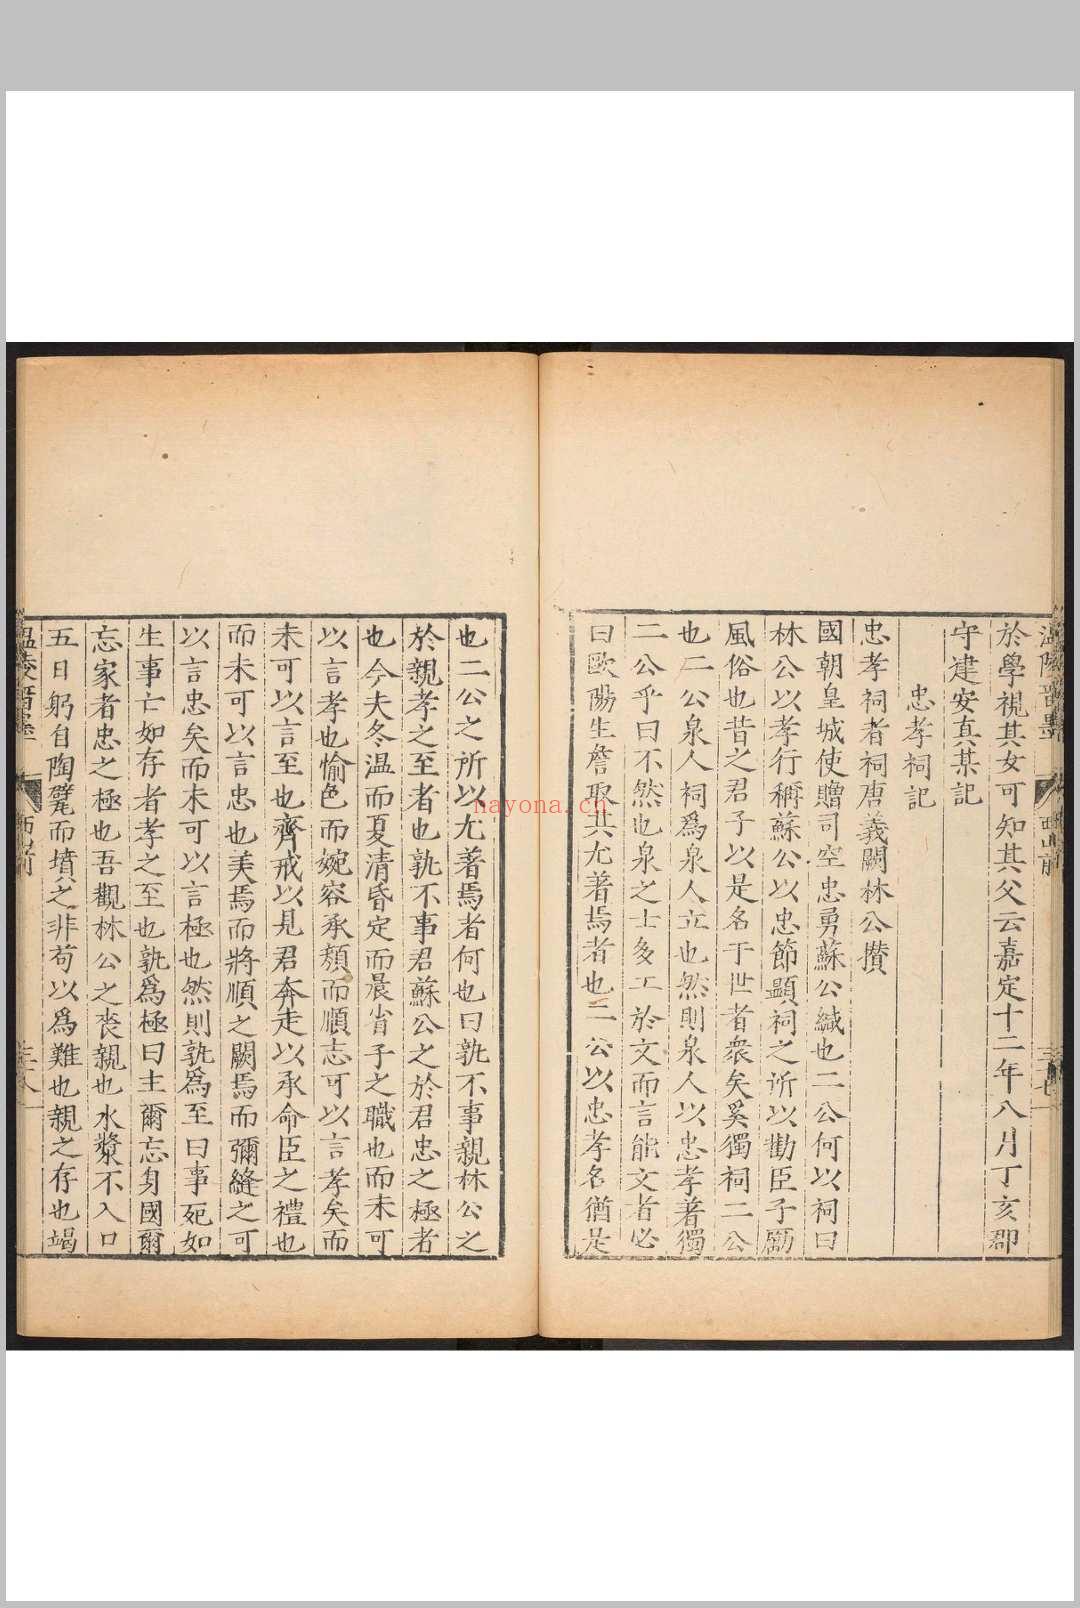 於學視其女可知其父云嘉定十二年八月丁亥郡
守建安真某記
忠孝祠記
忠孝祠者祠唐義闕林公攢
國朝皇城使贈司空忠勇蘇公緘也二公何以祠曰
林公以孝行稱蘇公以忠節顯祠之所以勸臣子勵
風俗也昔之君子以是名于世者衆矣奚獨祠二公
也二公泉人祠爲泉人立也然則泉人以忠孝著獨
二公乎曰不然也泉之士多工於文而言能文者必
曰歐陽生詹聚其尤著焉者也二公以忠孝名猶是
也二公之所以尤著焉者何也曰孰不事親林公之
於親孝之至者也孰不事君蘇公之於君忠之極者
也今夫冬温而夏清昏定而晨省子之職也而未可
以言孝也愉色而婉容承顏而順志可以言孝矣而
未可以言至也齊戒以見君奔走以承命臣之禮也
而未可以言忠也美焉而將順之闕焉而彌縫之可
以言忠矣而未可以言極也然則孰爲至曰事死如
生事亡如存者孝之至也孰爲極曰主爾忘身國爾
忘家者忠之極也吾觀林公之喪親也水漿不入口
五日躬自陶甓而墳之非苟以爲難也親之存也竭
nayona.cn